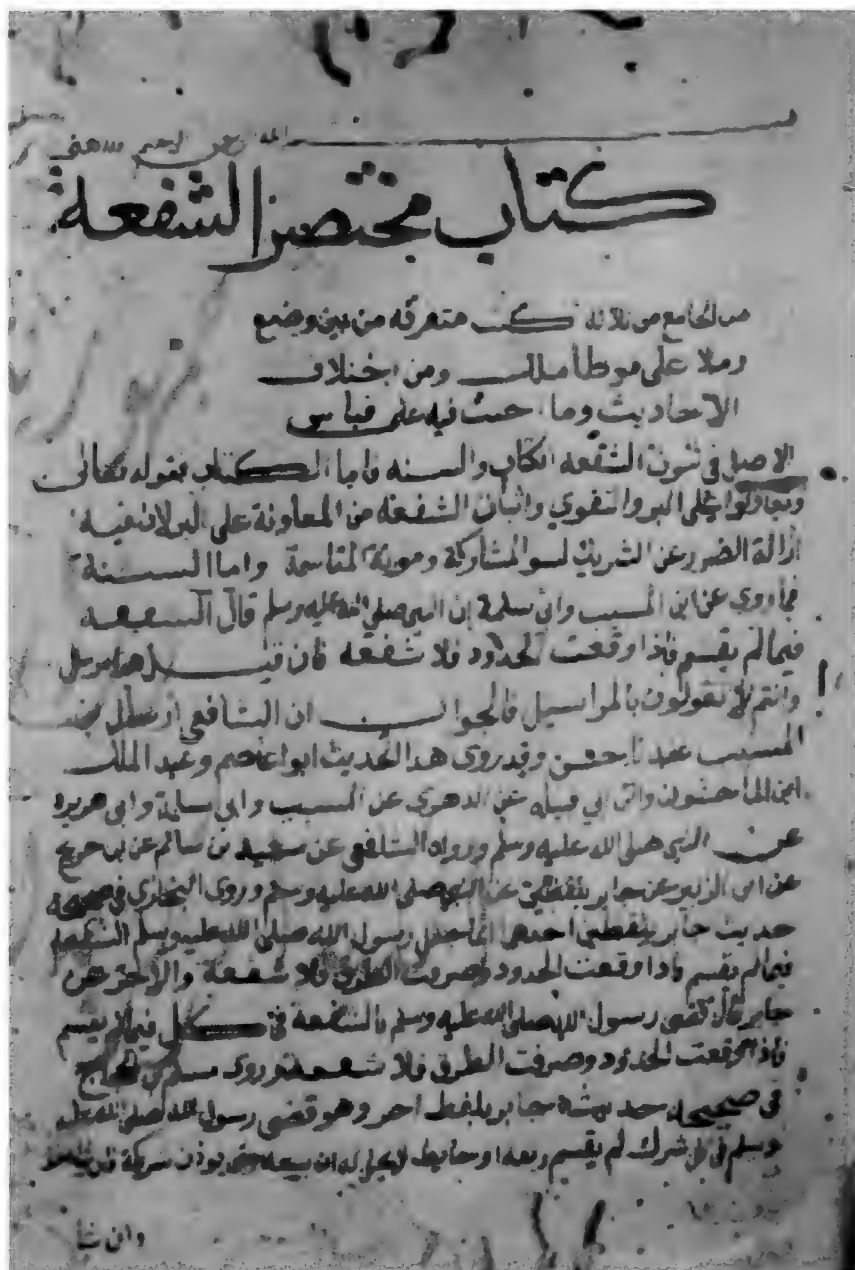 الله الرحمن الرحيم
كتاب مختصر الشفعة
من الجامع من ثلاثة كتب متفرقة من بين وضيع
وملا على موطا ملك ومن اختلاف
الاحاديث وما حيث فيه على قياس
الاصل فى ثبوت الشفعه الكتاب والسنه فاما الكتاب فقوله تعالى
وتعاونوا على البر والتقوي واثبات الشفعة من المعاونة على البر لان فيه
ازالة الضرر عن الشريك لسو المشاركة ومونة المقاسمة واما السنة
فما روي عن ابن المسيب وابى سلمة ان النبى صلى الله عليه وسلم قال الشفعه
فيما لم يقسم فاذا وقعت الحدود فلا شفعه فان قيل هذا مرسل
وانتم لا تقولون بالمراسيل فالجواب ان الشافعي
المسيب عند وقد روى هذا الحديث ابو عاصم وعبد الملك
ابن الماجشون وابن ابي عن الزهرى عن المسيب وابى سلمة وابى هريرة
عن النبى صلى الله عليه وسلم ورواه الشافعى عن سعيد بن سالم عن بن جريج
عن ابى الزبير عن جابر عن النبى صلى الله عليه وسلم وروى البخارى فى صحيحه
حديث جابر بلفظين احدهما انما جعل رسول الله صلى الله عليه وسلم الشفعة
فيما لم يقسم فاذا وقعت الحدود وصرفت الطرق فلا شفعة والاخر عن
جابر قال قضى رسول الله صلى الله عليه وسلم بالشفعة فى كل فيما لم يقسم
فاذا وقعت الحدود وصرفت الطرق فلا شفعة وروى مسلم بن الحجاج
فى صحيحه حديث جابر بلفظ اخر وهو قضى رسول الله صلى الله عليه
وسلم فى كل شرك لم يقسم ربعه او حايط لا يحل له ان يبيعه حتى يوذن شريكه فان
وان شا